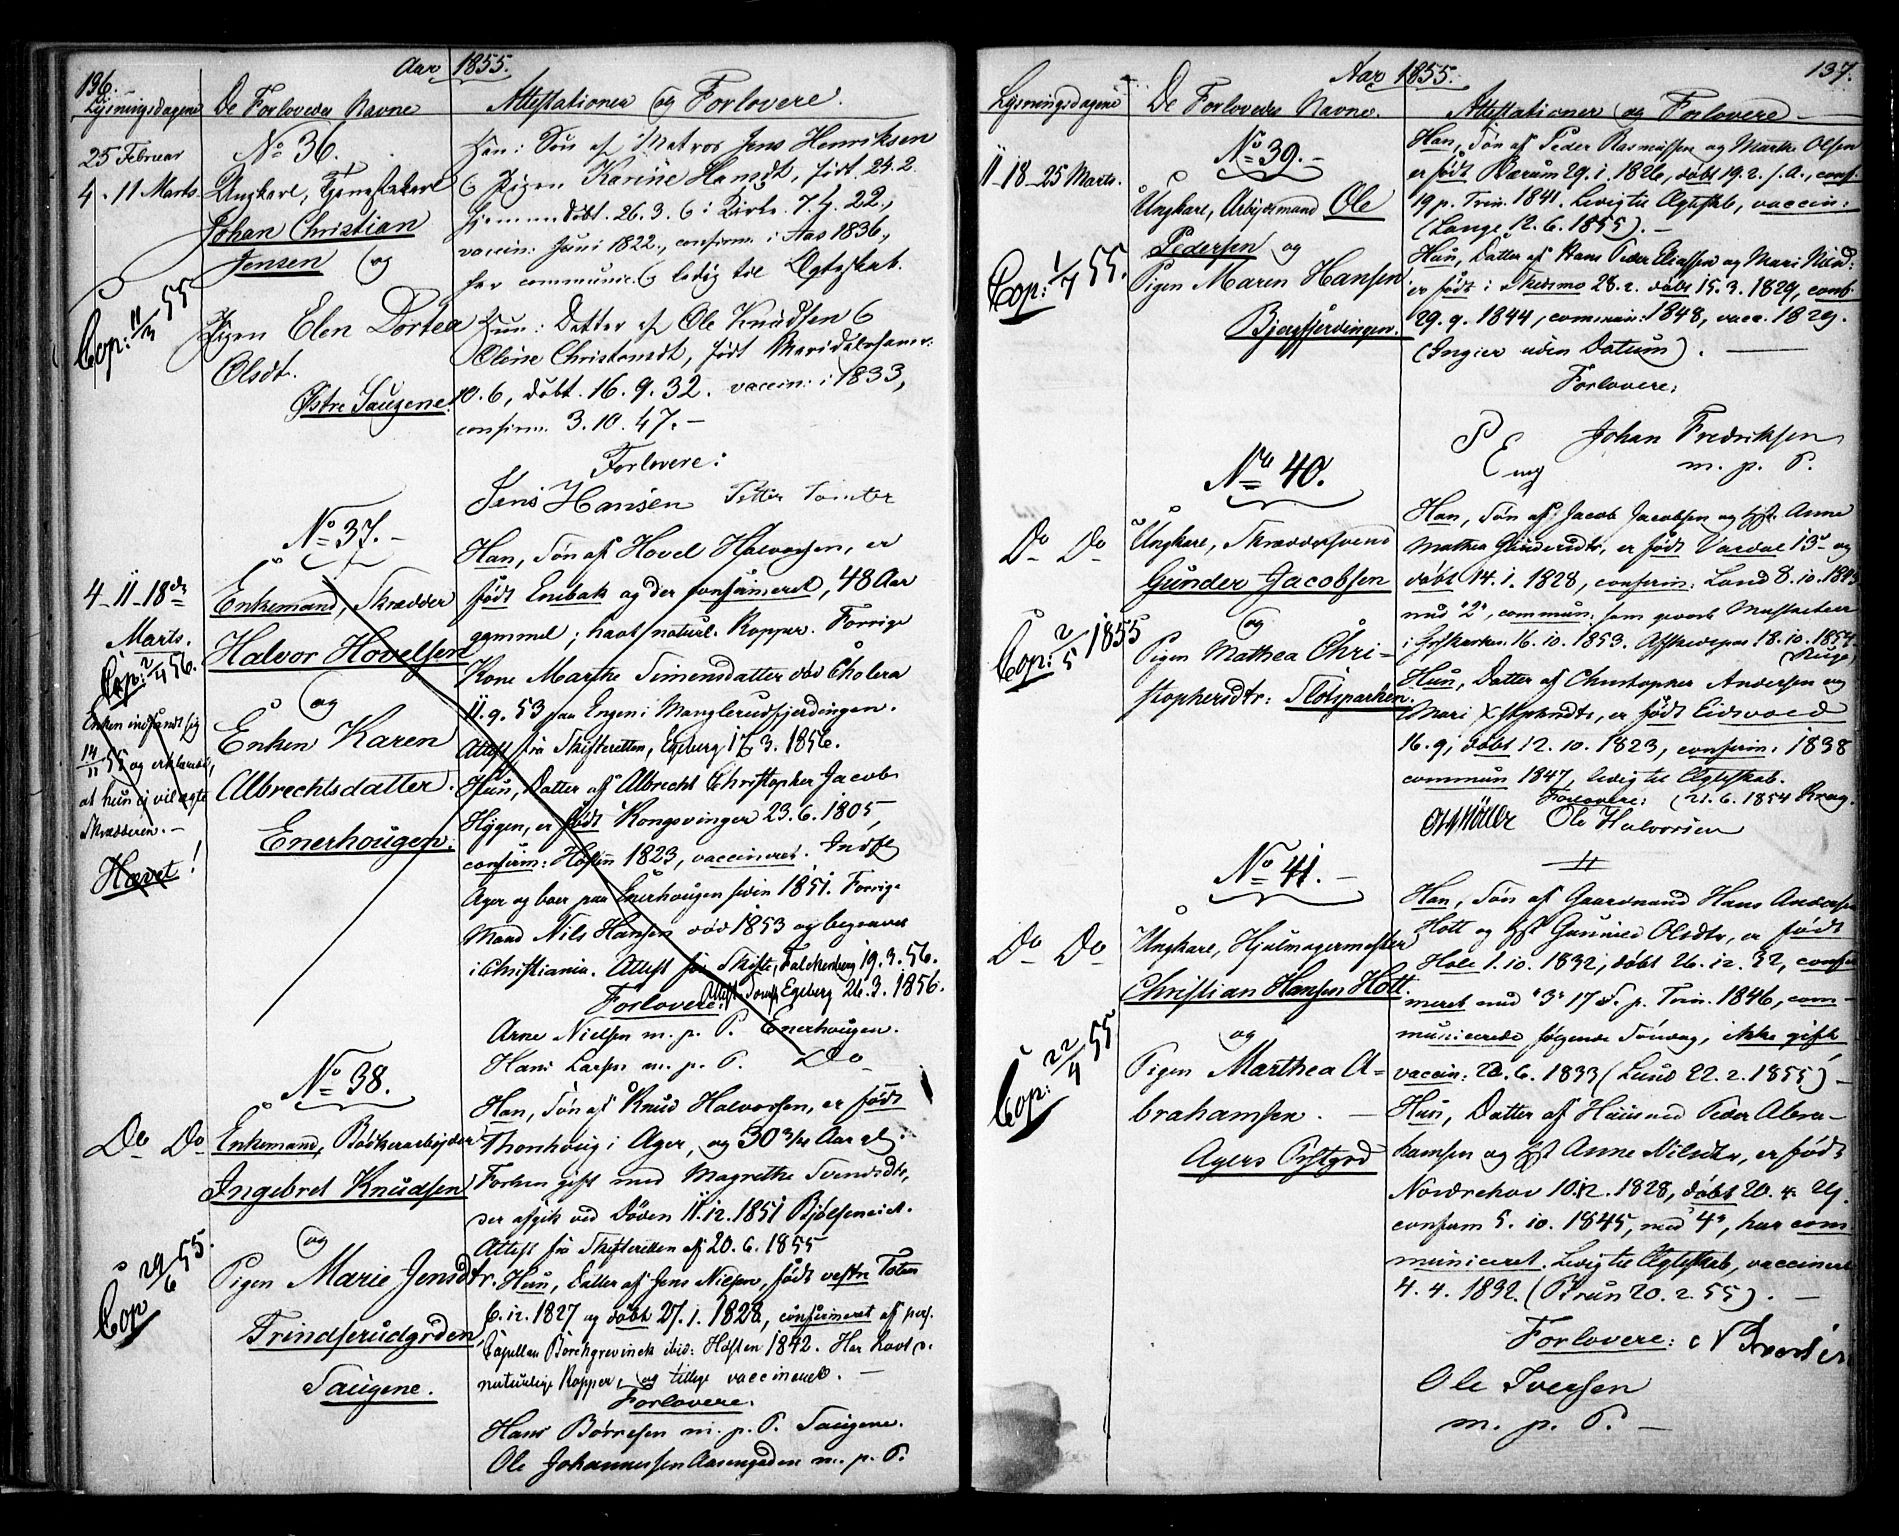 136.
Aar 1855.
Lysningsdagene De Forlovedes Navne Attestationer og Forlovere.
25 Februar
4 - 11 Marts.
Cop: 11/3 55
No 36.
Ungkarl, Tjenestekarl
Johan Christian
Jensen og
Pigen Elen Dortea
Olsdt.
Østre Saugene.
Han: Søn af Matros Jens Henriksen
& Pigen Karine Hansdt, født 24.2.
hjemmedøbt. 26.3. & i Kirke. 7.4. 22.,
vaccin. Juni 1822., confirm. i Aas 1836.,
har communic. & ledig til Ægteskab.
Hun: Datter af Ole Knudsen &
Oline Christensdt, født Maridalshamr.
10.6, døbt. 16.9.32. vaccin: i 1833,
confirm. 3.10.47.-
Forlovere:
Jens Hansen Petter Tomter
4-11-18de
Marts.
Cop: 2/4 56.
Enken indfandt sig
14/11 55 og erklærede,
at hun ej vil ægte
Skrædderen.-
Hævet!
No 37.-
Enkemand, Skrædder
Halvor Hovelsen
og
Enken Karen
Albrechtsdatter.
Enerhougen.
Han, Søn af Hovel Halvorsen, er
født Enebak og der confirmeret, 48 Aar
gammel; havt naturl. Kopper. Forrige
Kone Marthe Simensdatter død Cholera
11.9.53 paa Engen i Manglerudfjerdingen.
Attest fra Skifteretten, Egeberg 17.3.1856.
Hun, Datter af Albrecht Christopher Jacob
Høgen, er født Kongsvinger 23.6.1805,
confirm: Hosten 1823, vaccineret. Indfl.
Ager og boer paa Enerhougen siden 1851. Forrige
Mand Nils Hansen død 1853 og begravet
i Christiania. Attest fra Skifte, Falckenberg 19.3.56.
Attest Egeberg 26.3.1856.
Forlovere:
Arne Nielsen m.p.P. Enerhougen.
Hans Larsen m.p.P. Do
Do Do
Cop 29/6 55.
No 38.
Enkemand, Bødkerarbejder
Ingebret Knudsen
og
Pigen Marie Jensdtr.
Trindserudgrden,
Saugene.
Han, Søn af Knud Halvorsen, er født
Thonhoug i Ager, og 30 3/4 Aar gl.
Forhen gift med Magrethe Svendsdtr,
der afgik ved Døden 11.12.1851 Bjølseneiet.
Attest fra Skifteretten af 20.6.1855
Hun, Datter af Jens Nielsen, født vestre Toten
6.12.1827 og døbt 27.1.1828, confirmeret af pers.
Capellan Borchgrevinck ibid: Høsten 1842. Har havt d.
naturlige Kopper, og tillige vaccineret.-
Forlovere.
Hans Børresen m.p.P. Saugene.
Ole Johannessen Aasengaden m.p.P.
137.
Aar 1855.
Lysningsdagene De Forlovedes Navne. Attestationer og Forlovere
11-18-25 Marts.
Cop: 1/7 55.
No 39.-
Ungkarl, Arbejdsmand Ole
Pedersen og
Pigen Maren Hansen
Bjergfjerdingen.
Han, Søn af Peder Rasmussen og Marthe Olsen
er født Bærum 29.1.1826, døbt 19.2. s.A., conf.
19 p. Trin. 1841. Ledig til Ægteskab, vaccin:
(Lange 12.6.1855).-
Hun, Datter af Hans Peder Eliassen og Mari
er født i Skedsmo 28.2. døbt 15.3.1829, conf
29.9.1844, commun: 1848, vacc. 1829.
(Ingier uden Datum).
Forlovere;
Johan Fredriksen
m.p.P.
Do Do
Cop: 2/5 1855
No 40.
Ungkarl, Skræddersvend
Gunder Jacobsen
og
Pigen Mathea Chri-
stophersdtr: Slotsparken.
Han, Søn af Jacob Jacobsen og Hst. Anne
Mathea Gundersdtr, er født Vardal 13 og
døbt 14.1.1828, confirm: Land 8.10.1843
med "2", commun: som gevorb. Musketeer
16.10.1853. Afskedspas 18.10.1854.
Hun, Datter af Christopher Andersen og
Mari, er født Eidsvold
16.9, døbt 12.10.1823, confirm. 1838
commun 1847, ledig til Ægteskab.
(21.6.1854 Krag.
Forlovere:
Ole Halvorsen
Do Do
Cop: 22/4 55
No 41.-
Ungkarl, Hjulmagermester
Christian Hansen Hott.
og
Pigen Marthea A-
brahamsen.-
Agers Prstgrd
Han, Søn af Gaardmand Hans Andersen
Hott og Hst Gunild Olsdtr, er født
Hole 1.10.1832, døbt 26.12.32, confir
meret med "3" 17 S.p. Trin. 1846, com-
municerede følgende Søndag, ikke gift
vaccin: 22.6.1833 (Lund 22.2.1855)-
Hun, Datter af Huusmd Peder Abra-
hamsen og Hst Anne Nilsdtr, er født
Norderhov 10.12.1828, døbt 20.4.29.
confirm 5.10.1845, med "4", har com
municeret. Ledig til Ægteskab, vaccineret
4.4.1832. (Bruun 20.2.55).-
Forlovere:
Ole Iversen
m.p.P.-